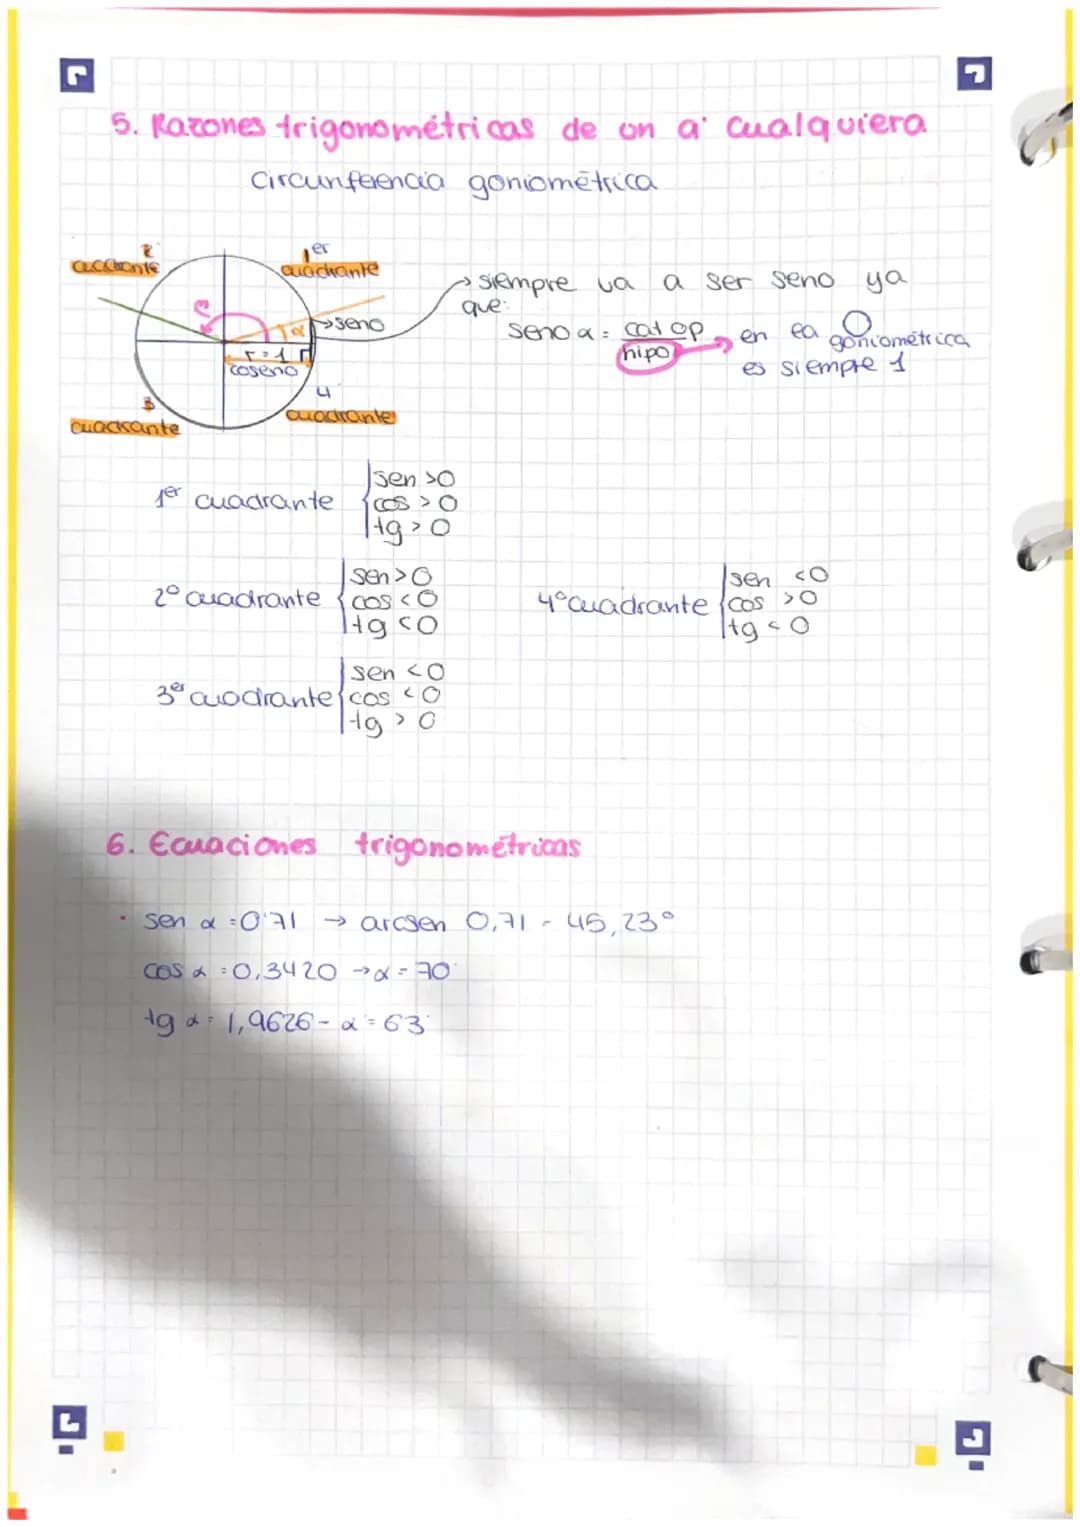 5. Razones trigonométricas de un a· cualquiera
Circunferencia goniométrica
2º
cuadrante
1er
cuadrante
α
→seno
r=1
coseno
3
cuadrante
4
cuadrante
→ siempre va a ser seno ya
que:
seno α = cat op
hipo → en la O goniométrica
es siempre 1
1er cuadrante
sen >0
cos >0
tg >0
2º cuadrante
sen >0
cos <0
tg <0
4º cuadrante
sen <0
cos >0
tg <0
3er cuadrante
sen <0
cos <0
tg > 0
6. Ecuaciones trigonométricas
· sen α =0'71 → arcsen 0,71 - 45,23°
cos α =0,3420 → α = 70·
tg α = 1,9626 - α = 63·